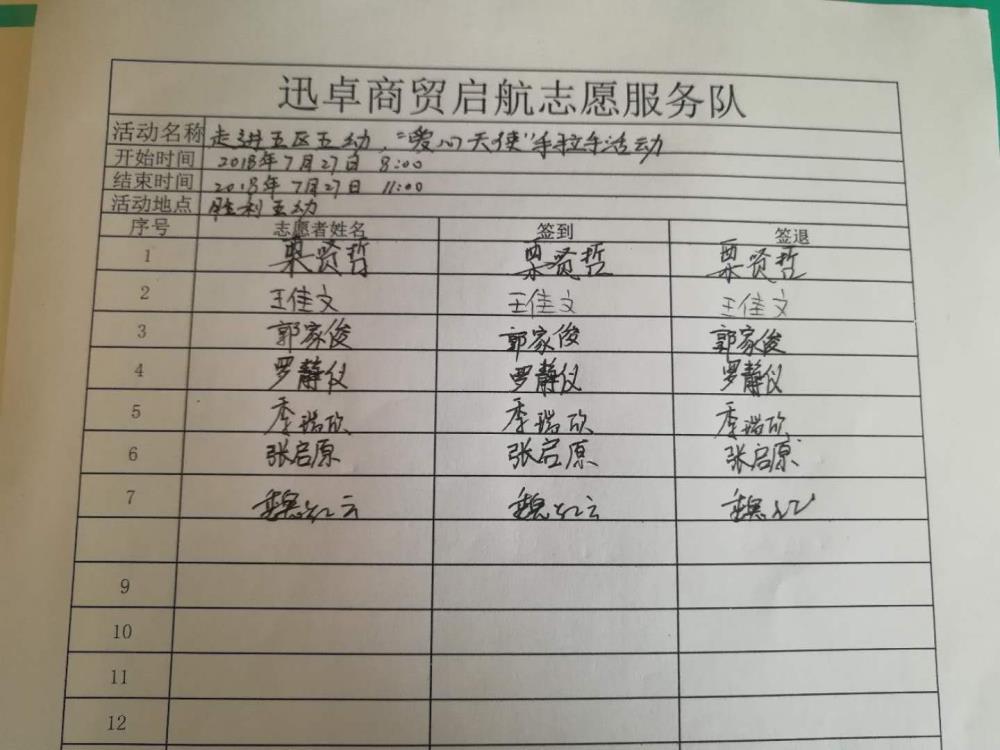 迅卓商贸启航志愿服务队
活动名称 走进五区五幼，“爱心天使”手拉手活动
开始时间 2018年7月27日 8:00
结束时间 2018年7月27日 11:00
活动地点 胜利五幼
序号 志愿者姓名 签到 签退
1 栗贤哲 栗贤哲 栗贤哲
2 王佳文 王佳文 王佳文
3 郭家俊 郭家俊 郭家俊
4 罗静仪 罗静仪 罗静仪
5 季瑞欣 季瑞欣 季瑞欣
6 张启原 张启原 张启原
7 魏红云 魏红云 魏红
9
10
11
12